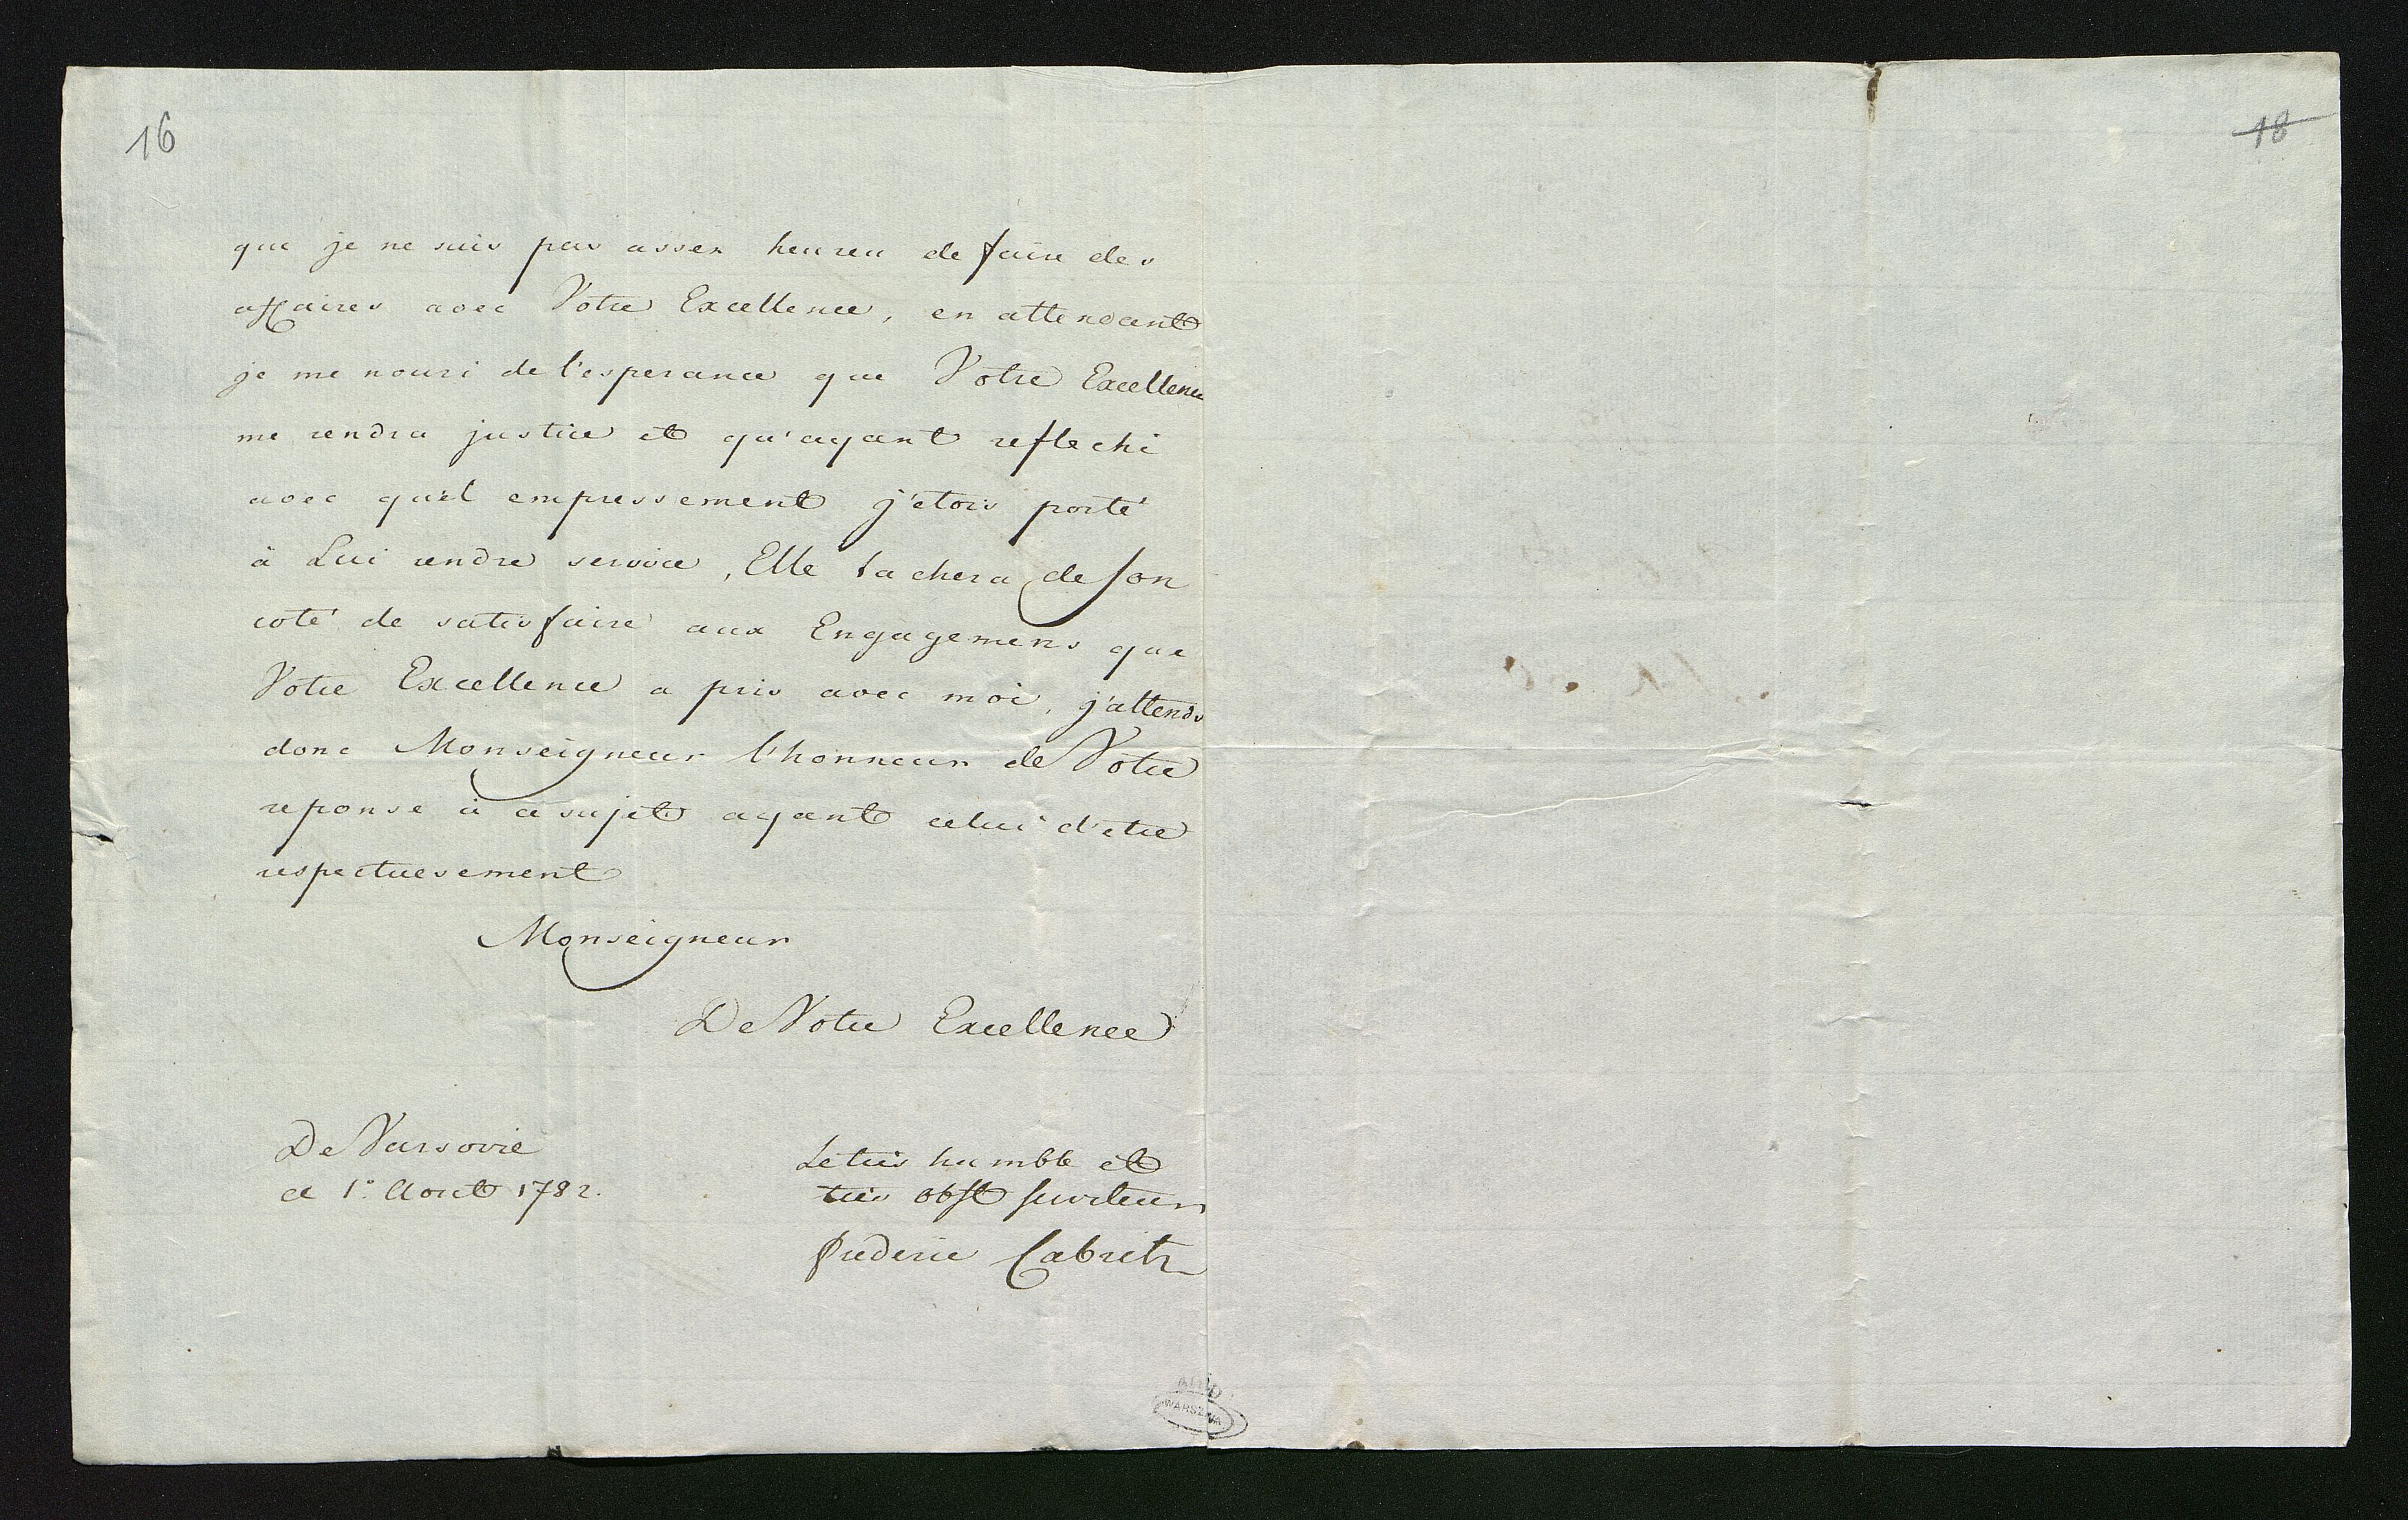 16
18
que je ne suis pas assez heureu de faire des
affaires avec Votre Excellence, en attendant
je me nouri de l'esperance que Votre Excellence
me rendra justice et qu'ayant reflechi
avec quel empressement j'etois porté
à Lui rendre service, Elle tachera de son
coté de satisfaire aux Engagemens que
Votre Excellence a pris avec moi, j'attends
donc Monseigneur l'honneur de Votre
reponse à ce sujet ayant celui d'etre
respectuesement
Monseigneur
De Votre Excellence
De Varsovie
ce 1º Aout 1782.
Le tres humble et
tres obst serviteur
Frederic Cabrit
AGAD
WARSZAWA